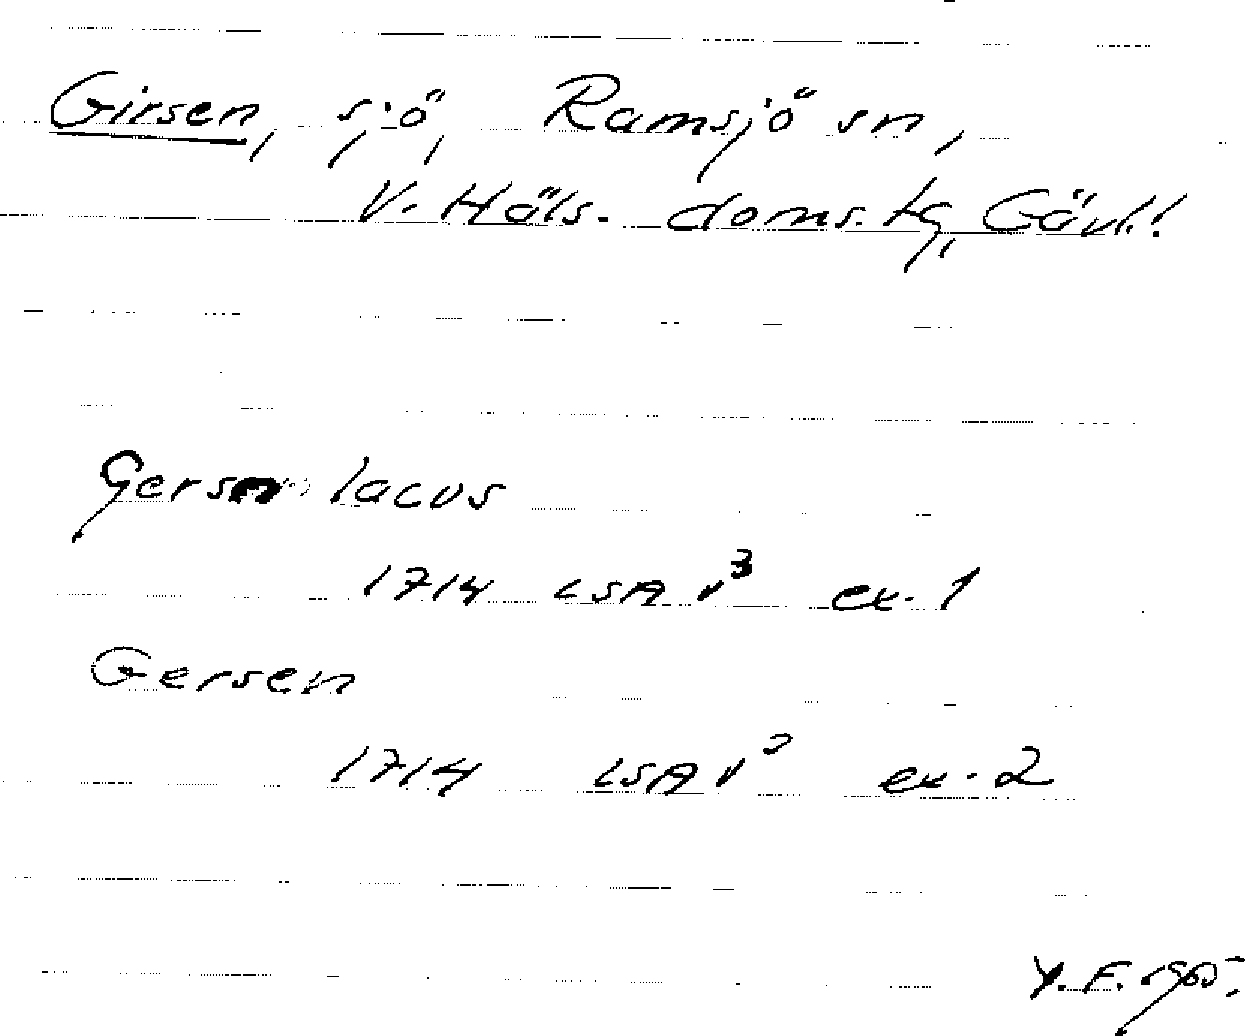 Girsen, sjö, Ramsjö sn,
V. Häls. doms. tg, Gävl.!
Gersen lacus
1714 LSA V³ ex. 1
Gersen
1714 LSA V³ ex. 2
Y. F.